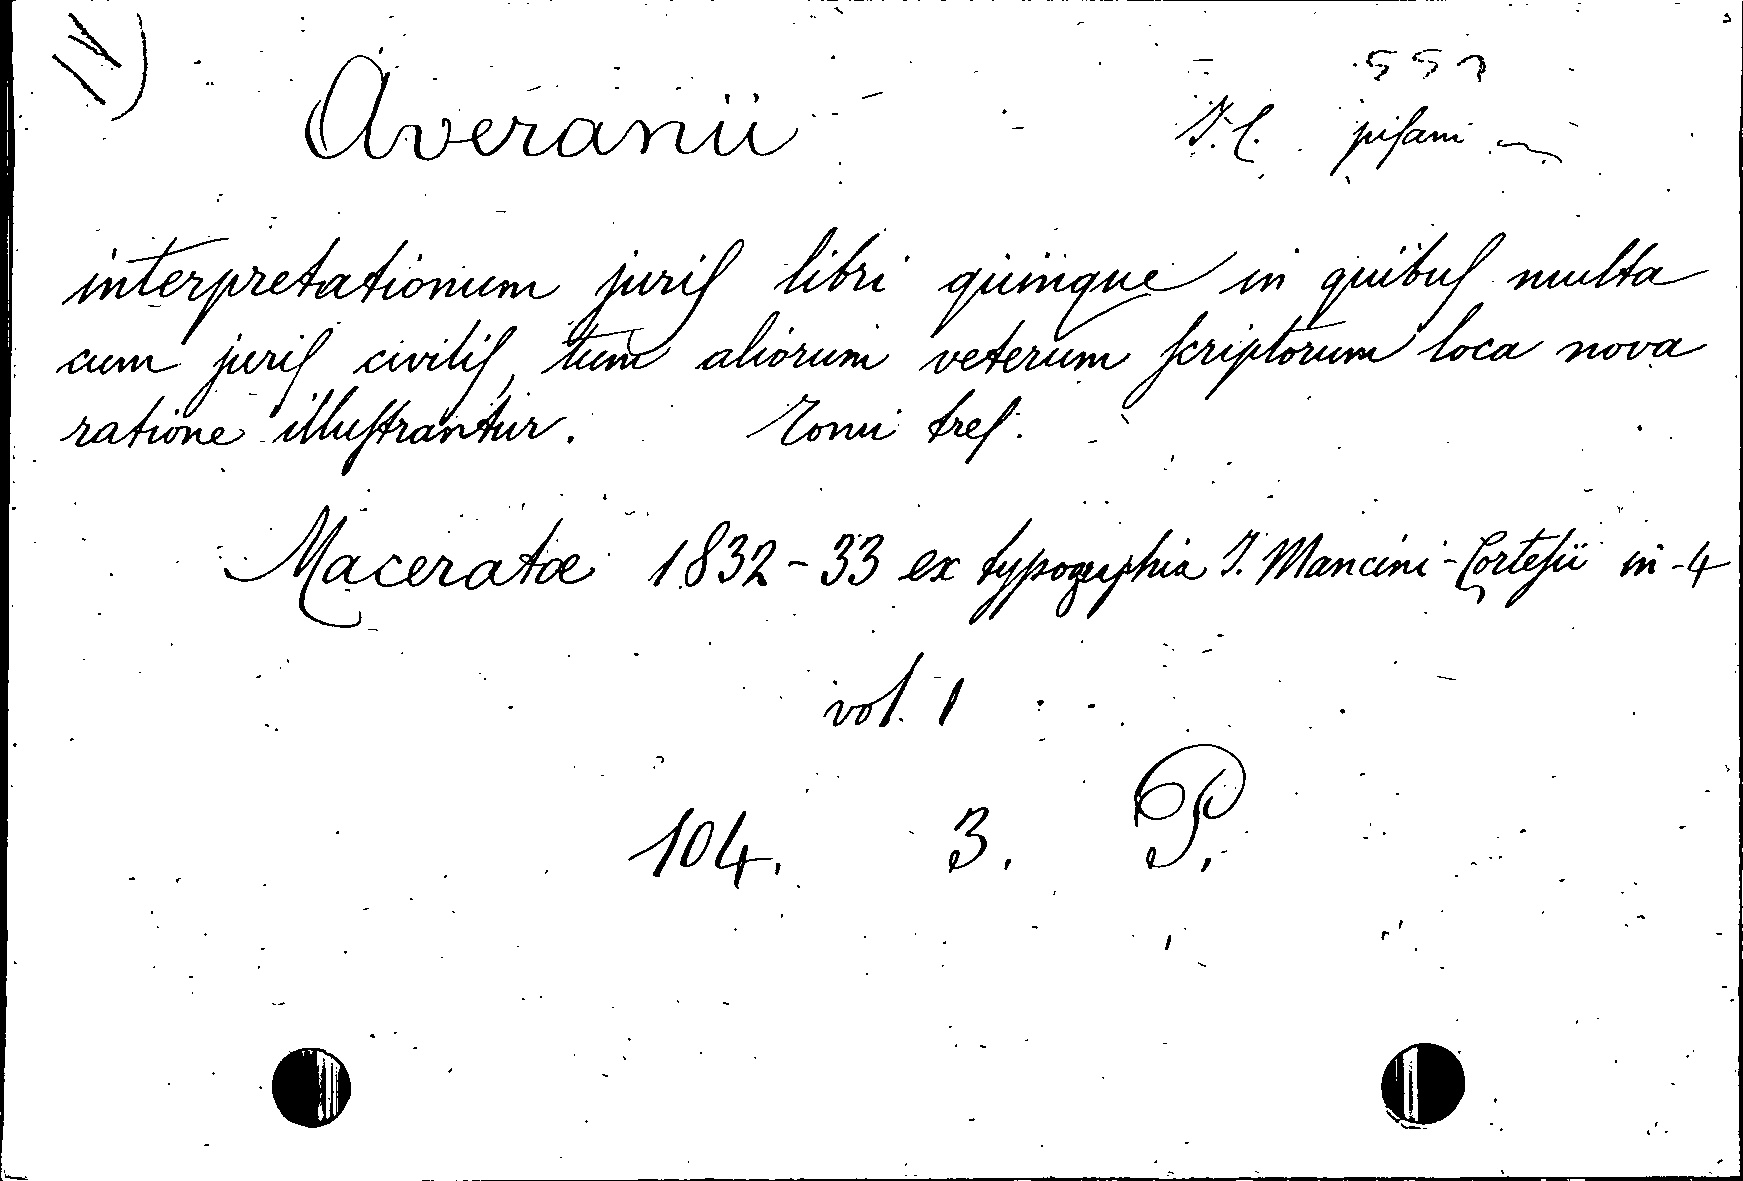 IV)
Averanii I. C. pisani
interpretationum juris libri quinque in quibus multa
cum juris civilis, tum aliorum veterum scriptorum loca nova
ratione illustrantur. Tomi tres.
Maceratæ 1832-33 ex typographia I. Mancini-Cortesii in-4
vol. 1
104. 3. P.